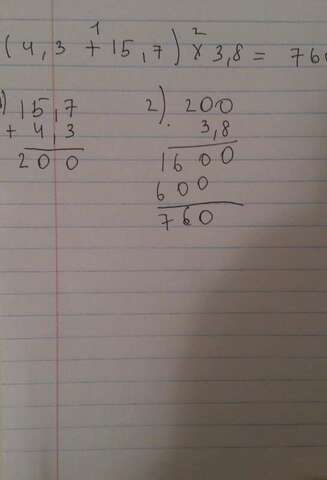 (4,3 + 15,7) × 3,8 = 760
1 2
1) 15,7
+ 4,3
200
2) 200
3,8
1600
600
760